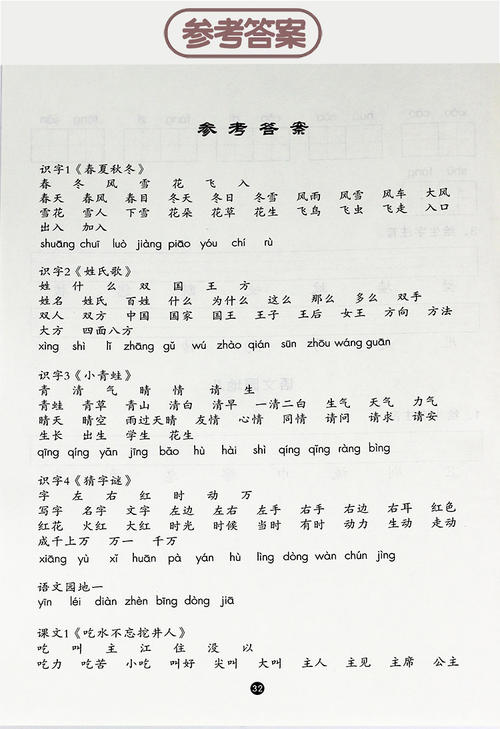 参考答案
参考答案
识字1《春夏秋冬》
春 冬 风 雪 花 飞 入
春天 春风 春日 冬天 冬日 冬雪 风雨 风雪 风车 大风
雪花 雪人 下雪 花朵 花草 花生 飞鸟 飞虫 飞走 入口
出入 加入
shuāng chuī luò jiàng piāo yóu chí rù
识字2《姓氏歌》
姓 什 么 双 国 王 方
姓名 姓氏 百姓 什么 为什么 这么 那么 多么 双手
双人 双方 中国 国家 国王 王子 王后 女王 方向 方法
大方 四面八方
xìng shì lǐ zhāng gǔ wú zhào qián sūn zhōu wáng guān
识字3《小青蛙》
青 清 气 晴 情 请 生
青蛙 青草 青山 清白 清早 一清二白 生气 天气 力气
晴天 晴空 雨过天晴 友情 心情 同情 请问 请求 请安
生长 出生 学生 花生
qīng qíng yǎn jīng bǎo hù hài shì qíng qǐng ràng bìng
识字4《猜字谜》
字 左 右 红 时 动 万
写字 名字 文字 左边 左右 左手 右手 右边 右耳 红色
红花 火红 大红 时光 时候 当时 有时 动力 生动 走动
成千上万 万一 千万
xiāng yù xǐ huān pà yán hù lìng dòng wàn chún jìng
语文园地一
yīn léi diàn zhèn bīng dòng jiā
课文1《吃水不忘挖井人》
吃 叫 主 江 住 没 以
吃力 吃苦 小吃 叫好 尖叫 大叫 主人 主见 主席 公主
32